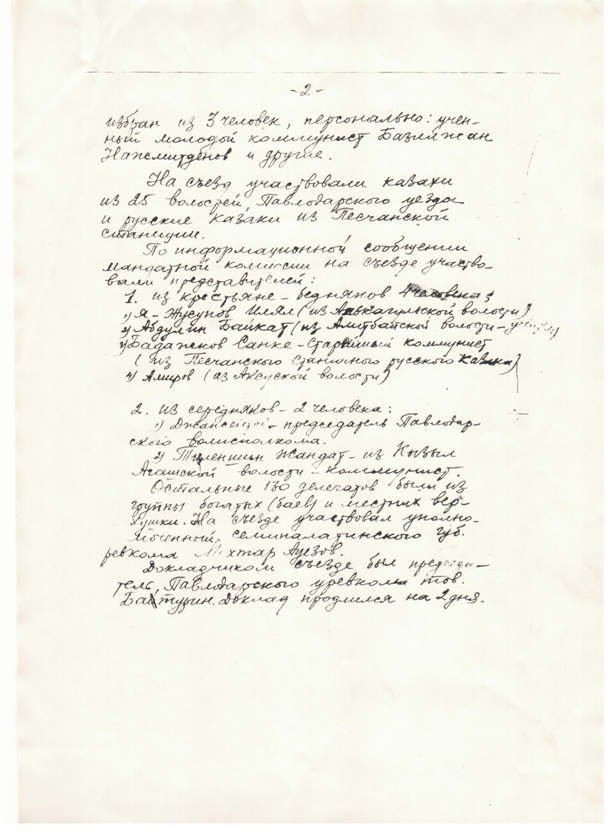 - 2 -
избран из 3 человек, персонально: учен-
ный молодой коммунист Базляжан
Нажмитденов и другие.
На съезд участвовали казахи
из 25 волостей, Павлодарского уезда
и русские казаки из Песчанской
станции.
По информационной сообщении
мандатной комиссии на съезде участво-
вали представителей:
1. из крестьяне - бедняков 4 человека:
1) Я - Жусупов Илял (из волости)
2) Абдулин Байкат (из Алтбайской волости -
3) Бадажков Санке - Старейший коммунист
(из Песчанского Станичного русского казака)
4) Амиров (из Аксуской волости)
2. Из середняков - 2 человека:
1) - председатель Павлодар-
ского волисполкома.
2) Тиленшин Жандат - из Кызыл
Агашской волости - коммунист.
Остальные 130 делегатов были из
группы богатых (баев) и местных вер-
хушки. На съезде участвовал уполно-
моченный, семипалатинского губ.
ревкома Мухтар Ауезов.
Докладчиком съезде был председа-
тель, Павлодарского уревкома тов.
Байтурин. Доклад продлился на 2 дня.